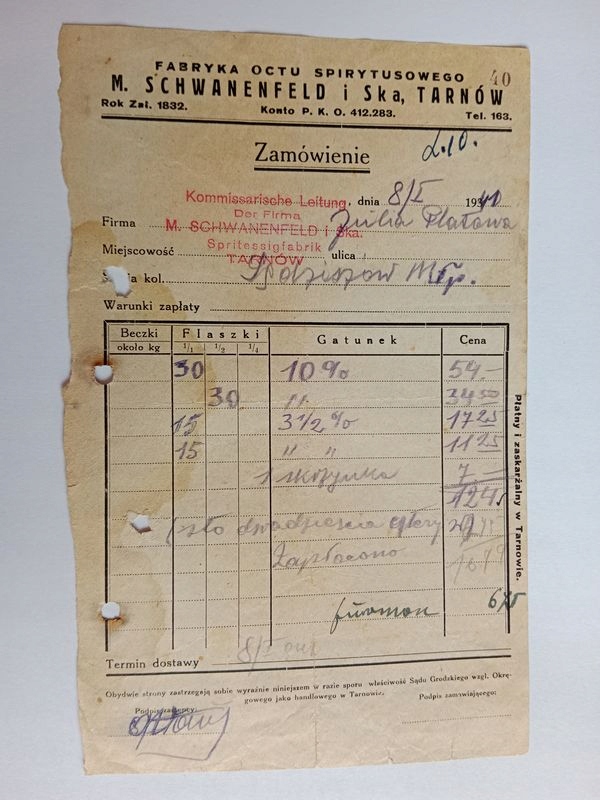 40
FABRYKA OCTU SPIRYTUSOWEGO
M. SCHWANENFELD i Ska, TARNÓW
Rok Zał. 1832. Konto P. K. O. 412.283. Tel. 163.
Zamówienie
Kommissarische Leitung
Der Firma
M. SCHWANENFELD i Ska.
Spritessigfabrik
TARNÓW
dnia 8/I 1940
Firma Julia Płatowa
Miejscowość ulica
kol.
Warunki zapłaty
Beczki Flaszki Gatunek Cena
około kg 1/1 1/2 1/4
30 10% 54.—
30 " 34 50
15 3 1/2 % 17 25
15 " " 11 25
1 skrzynka 7 —
124
(sto dwadzieścia cztery
Zapłacono
furman
Płatny i zaskarżalny w Tarnowie.
Termin dostawy 8/I
Obydwie strony zastrzegają sobie wyraźnie niniejszem w razie sporu właściwość Sądu Grodzkiego wzgl. Okrę-
gowego jako handlowego w Tarnowie.
Podpis zamawiającego: